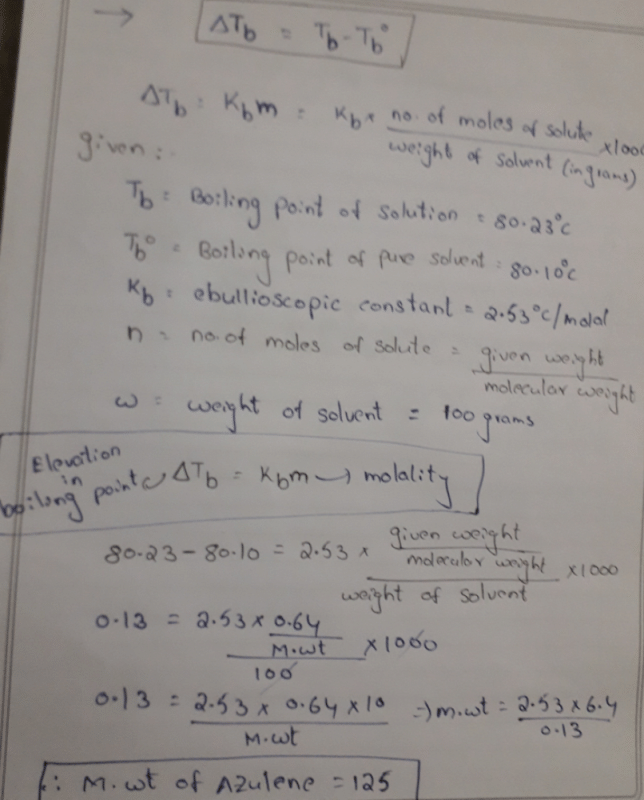 → ΔTb = Tb - Tb°
ΔTb = Kbm = Kb × no. of moles of solute / weight of solvent (in grams) ×1000
given :-
Tb = Boiling point of solution = 80.23°c
Tb° = Boiling point of pure solvent = 80.10°c
Kb = ebullioscopic constant = 2.53°c/molal
n = no. of moles of solute = given weight / molecular weight
w = weight of solvent = 100 grams
Elevation in boiling point ΔTb = Kbm → molality
80.23 - 80.10 = 2.53 × given weight / molecular weight / weight of solvent ×1000
0.13 = 2.53 × 0.64 / M.wt / 100 ×1000
0.13 = 2.53 × 0.64 × 10 / M.wt ⇒ m.wt = 2.53×6.4 / 0.13
∴ M.wt of Azulene = 125